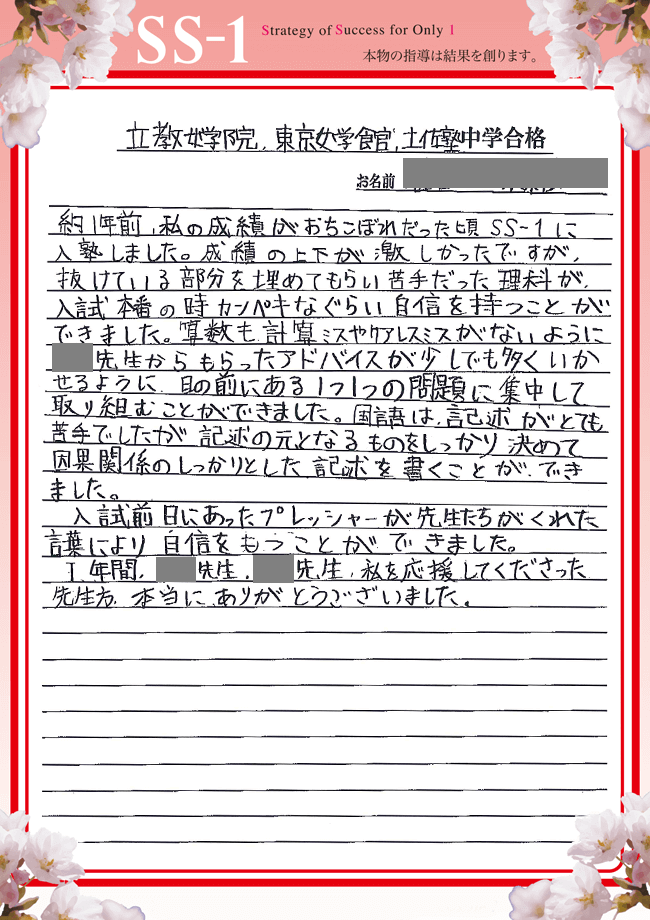 SS-1
Strategy of Success for Only 1
本物の指導は結果を創ります。
立教女学院、東京女学館、土佐塾中学合格
お名前
約1年前、私の成績がおちこぼれだった頃 SS-1に
入塾しました。成績の上下が激しかったですが、
抜けている部分を埋めてもらい苦手だった理科が、
入試本番の時カンペキなぐらい自信を持つことが
できました。算数も計算ミスやケアレスミスがないように
先生からもらったアドバイスが少しでも多くいか
せるように、目の前にある1つ1つの問題に集中して
取り組むことができました。国語は、記述がとても
苦手でしたが記述の元となるものをしっかり決めて
因果関係のしっかりとした記述を書くことができ
ました。
入試前日にあったプレッシャーが先生たちがくれた
言葉により自信をもつことができました。
1年間、先生、先生、私を応援してくださった
先生方、本当にありがとうございました。